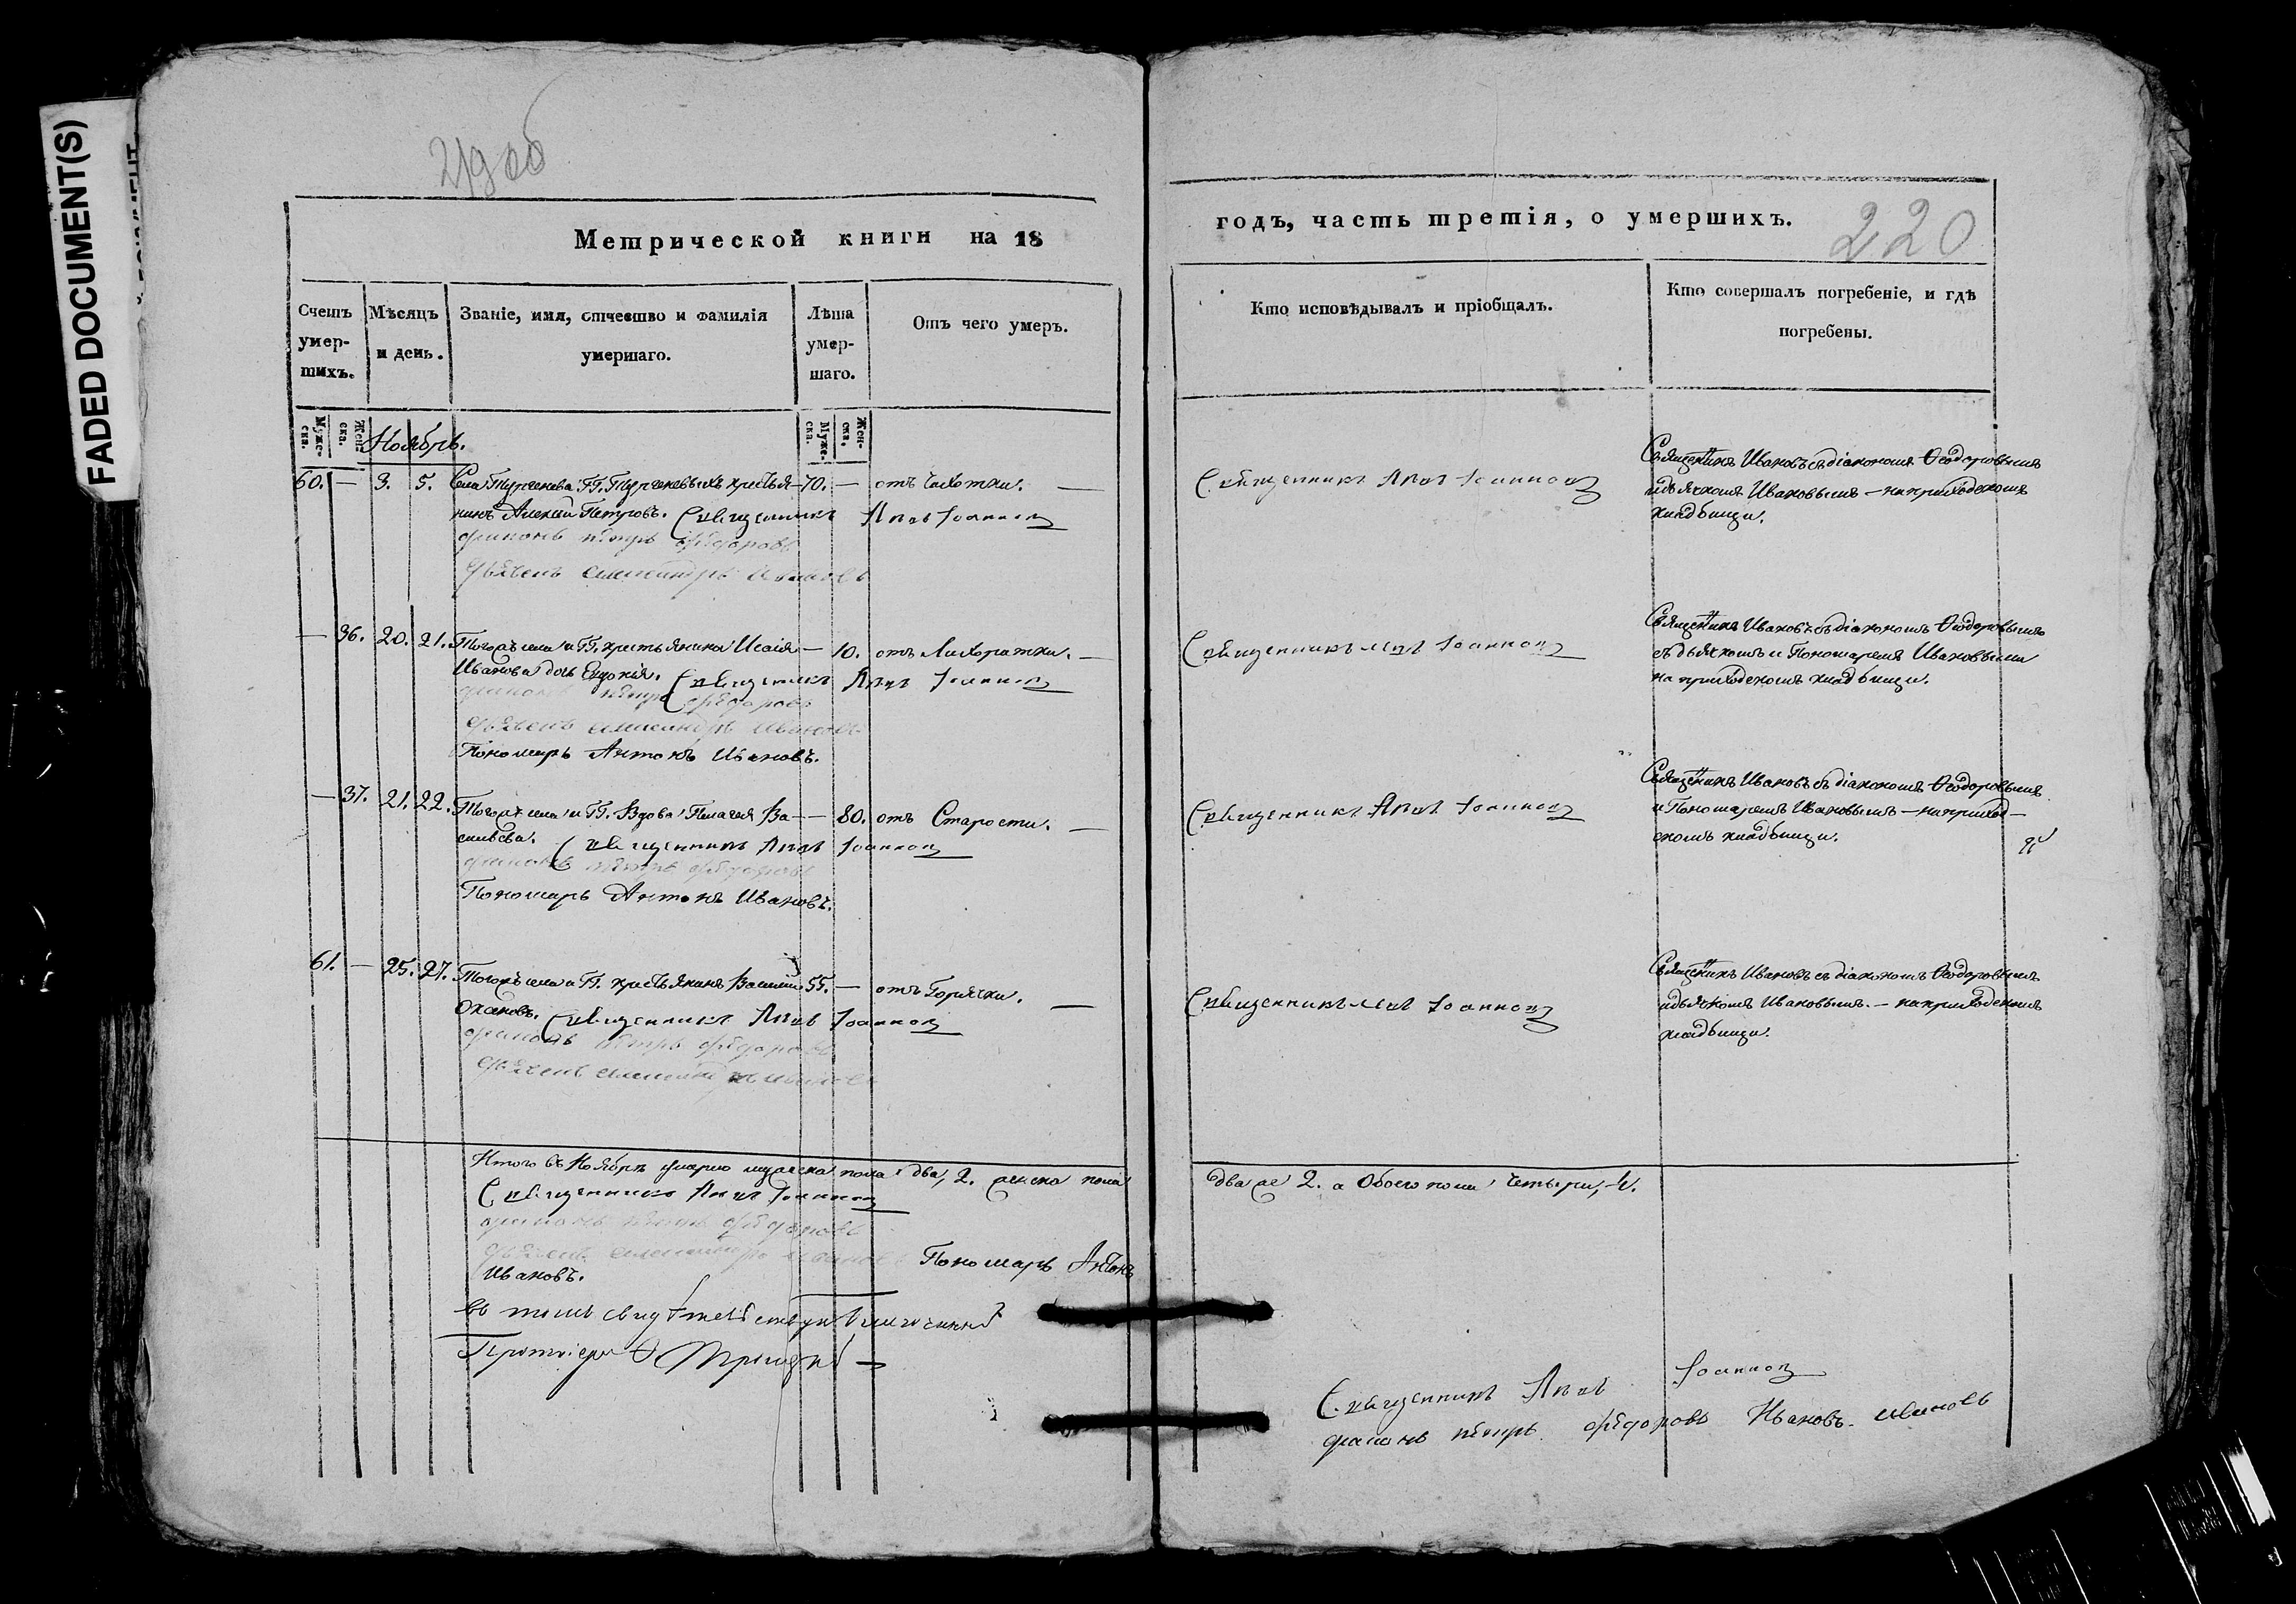 FADED DOCUMENT(S)
219 об
220
Метрической книги на 18
годъ, часть третія, о умершихъ.
Счетъ умер-шихъ.
Мѣсяцъ и день.
Званіе, имя, отчество и фамилія умершаго.
Лѣта умер-шаго.
Отъ чего умеръ.
Кто исповѣдывалъ и пріобщалъ.
Кто совершалъ погребеніе, и гдѣ погребены.
Муже-ска. Жен-ска.
Муже-ска. Жен-ска.
Ноябрь.
60. — 3. 5. Села Тургенева ГГ. Тургеневыхъ крестья- 70. — отъ Чахотки. —
нинъ Алексій Петровъ. Священникъ Іоанновъ
диаконъ петръ фёдоровъ
дьячекъ александръ ивановъ
Священникъ Іоанновъ
Священникъ Ивановъ съ діакономъ Ѳеодоровымъ
и дьячкомъ Ивановымъ — на приходскомъ
кладбищи.
— 36. 20. 21. Тогожъ села и ГГ. крестьянина Исаія — 10. отъ Лихоратки. —
Иванова дочь Евдокія. Священникъ Іоанновъ
диаконъ петръ фёдоровъ
дьячекъ александръ ивановъ
Пономарь Антонъ Ивановъ.
Священникъ Іоанновъ
Священникъ Ивановъ съ діакономъ Ѳеодоровымъ
съ дьячкомъ и Пономаремъ Ивановыми
на приходскомъ кладбищи.
— 37. 21. 22. Тогожъ села и ГГ. Вдова Пелагея Ва- — 80. отъ Старости. —
сильева. Священникъ Іоанновъ
диаконъ петръ фёдоровъ
Пономарь Антонъ Ивановъ.
Священникъ Іоанновъ
Священникъ Ивановъ съ діакономъ Ѳеодоровымъ
и Пономаремъ Ивановымъ — на приход-
скомъ кладбищи.
61. — 25. 27. Тогожъ села и ГГ. крестьянинъ Василій 55. — отъ Горячки. —
Священникъ Іоанновъ
диаконъ петръ фёдоровъ
дьячекъ александръ ивановъ
Священникъ Іоанновъ
Священникъ Ивановъ съ діакономъ Ѳеодоровымъ
и дьячкомъ Ивановымъ. — на приходскомъ
кладбищи.
Итого въ Ноябрѣ умерло мужеска пола два, 2. женска пола
два же 2. а Обоего пола четыри, 4.
Священникъ Іоанновъ
диаконъ петръ фёдоровъ
дьячекъ александръ ивановъ Пономарь Антонъ
Ивановъ.
въ томъ свидѣтельствую Благочинный
Протоіерей Троицкій
Священникъ Іоанновъ
диаконъ петръ фёдоровъ Ивановъ. ивановъ